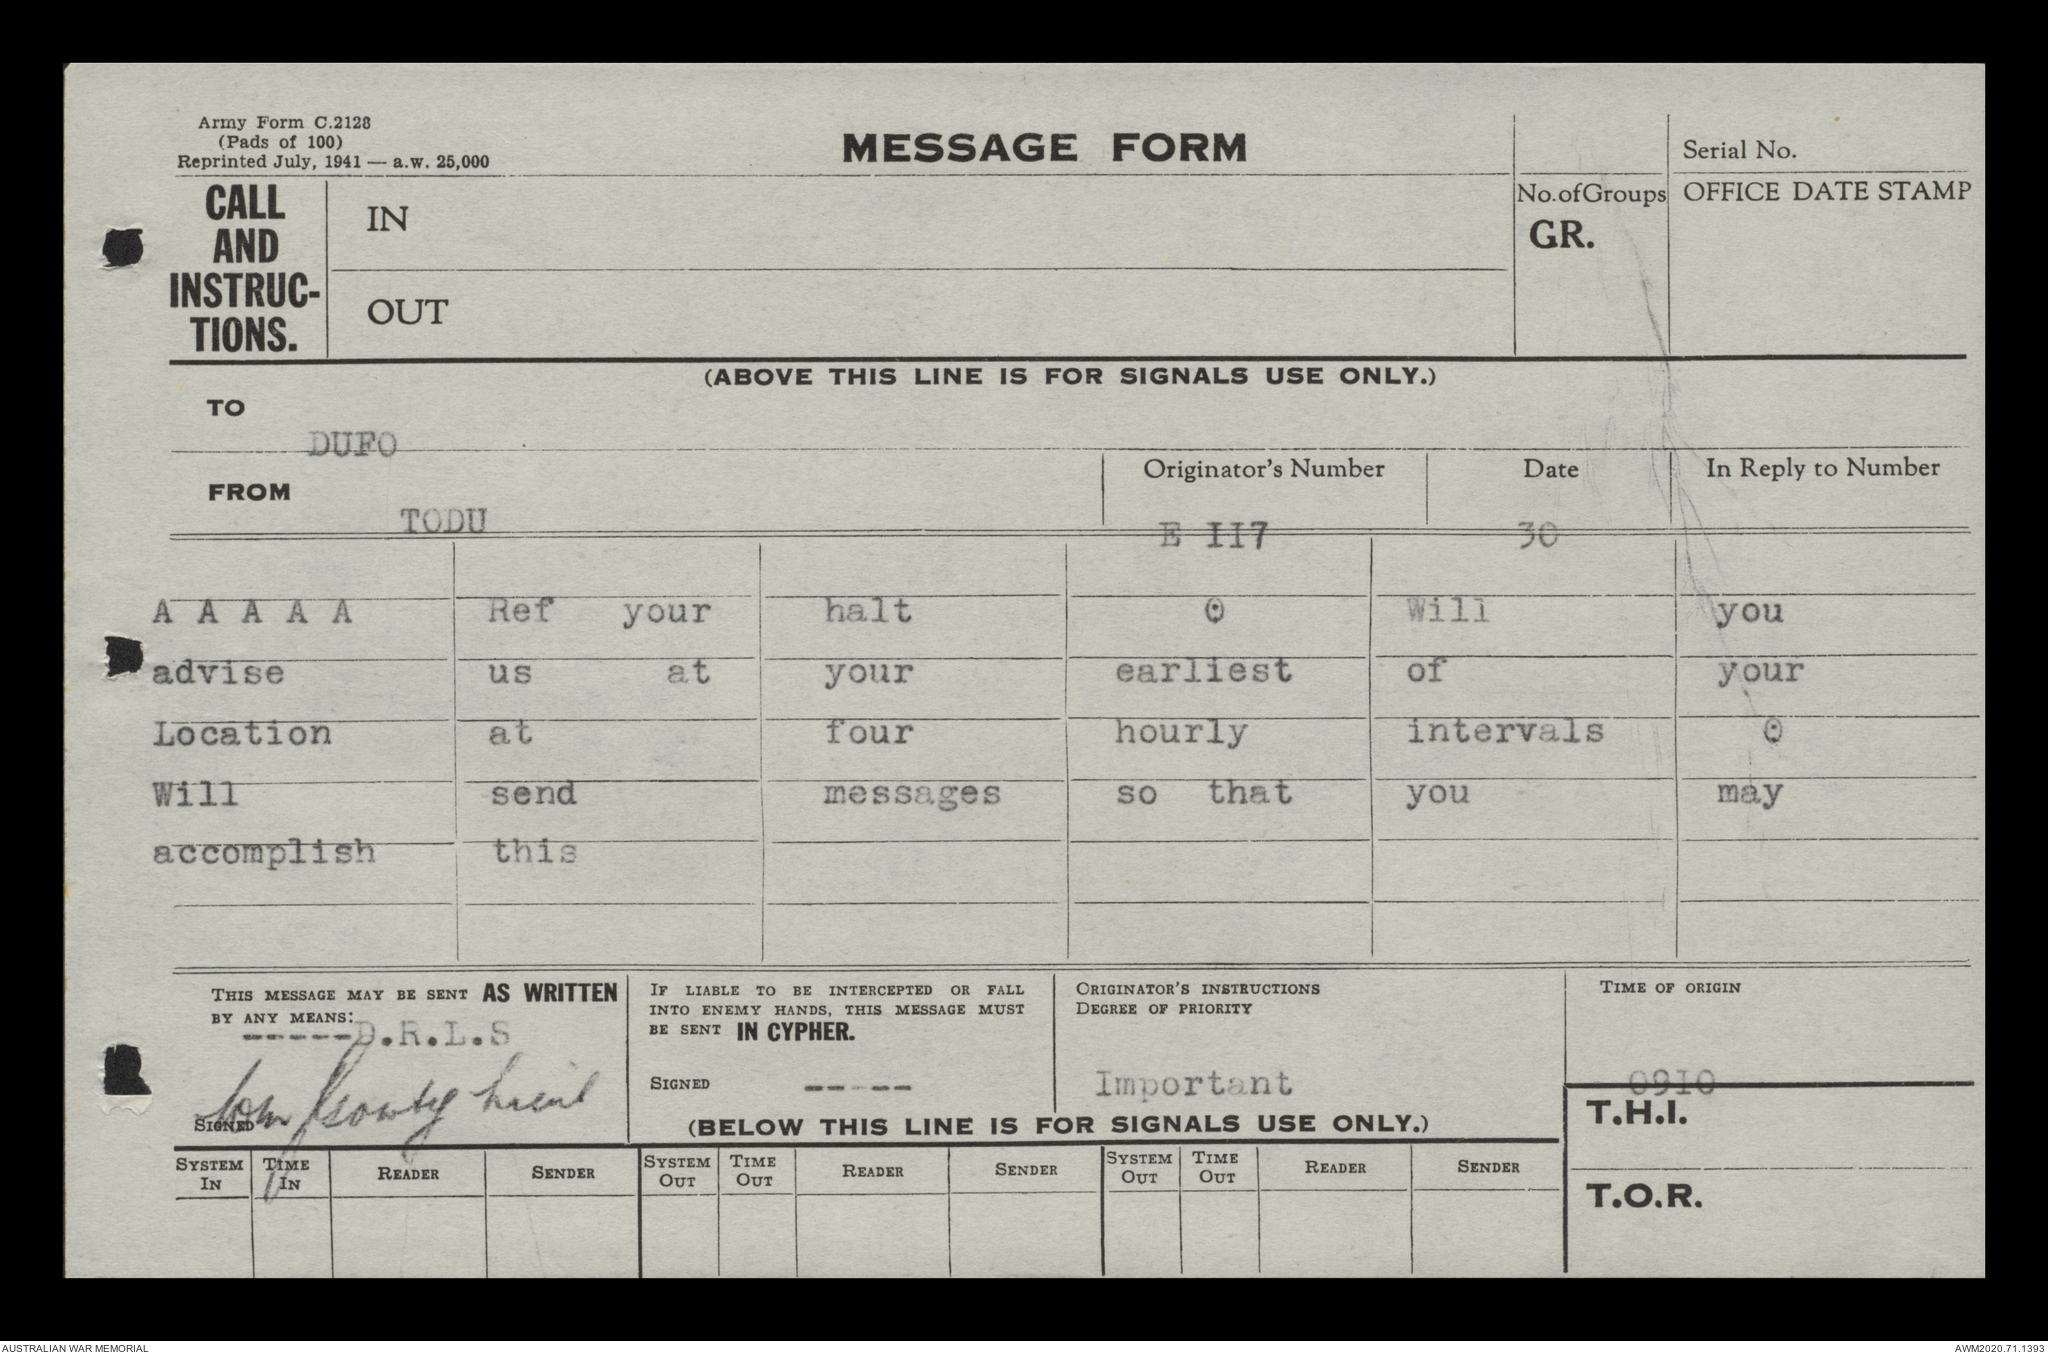 Army Form C.2128
(Pads of 100)
Reprinted July, 1941 — a.w. 25,000
MESSAGE FORM
Serial No.
CALL AND INSTRUC-TIONS.
IN
No. of Groups
GR.
OFFICE DATE STAMP
OUT
(ABOVE THIS LINE IS FOR SIGNALS USE ONLY.)
TO
DUFO
FROM
TODU
Originator's Number
E II7
Date
30
In Reply to Number
A A A A A Ref your halt 0 Will you
advise us at your earliest of your
Location at four hourly intervals 0
Will send messages so that you may
accomplish this
THIS MESSAGE MAY BE SENT AS WRITTEN
BY ANY MEANS:
-----D.R.L.S
SIGNED
IF LIABLE TO BE INTERCEPTED OR FALL
INTO ENEMY HANDS, THIS MESSAGE MUST
BE SENT IN CYPHER.
SIGNED -----
ORIGINATOR'S INSTRUCTIONS
DEGREE OF PRIORITY
Important
TIME OF ORIGIN
09I0
(BELOW THIS LINE IS FOR SIGNALS USE ONLY.)
T.H.I.
T.O.R.
SYSTEM IN TIME IN READER SENDER SYSTEM OUT TIME OUT READER SENDER SYSTEM OUT TIME OUT READER SENDER
AUSTRALIAN WAR MEMORIAL
AWM2020.71.1393